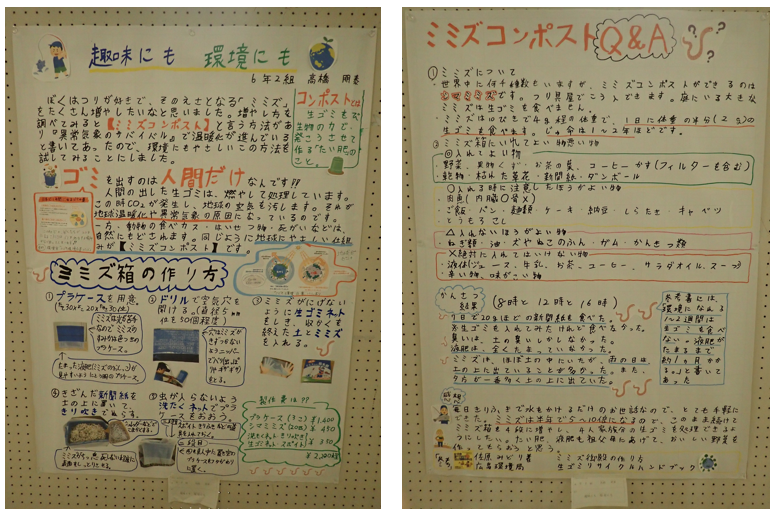 趣味にも 環境にも
6年2組 高橋
ぼくはつりが好きで、そのえさとなる「ミミズ」
をたくさん増やしたいなと思いました。増やし方を
調べてみると【ミミズコンポスト】と言う方法があ
り『異常気象のサバイバル』で温暖化が進んでいる
と書いてあったので、環境にもやさしいこの方法を
試してみることにしました。
コンポストとは
生ゴミを
生物の力で、
発こうさせて
作るたい肥の
こと。
ゴミを出すのは人間だけなんです!!
人間の出した生ゴミは、燃やして処理しています。
この時CO2が発生し、地球の空気を汚します。それが
地球温暖化や異常気象の原因になっているのです。
一方、動物の食べカス・はいせつ物・死がいなどは、
自然にもどされます。同じように地球にやさしい仕組
みが【ミミズコンポスト】です。
ミミズ箱の作り方
①プラケースを用意
②ドリルで空気穴を
開ける。(直径5mm
位を50個程度)
③ミミズがにげない
ように生ゴミネット
をしき、収かくを
終えた土とミミズ
を入れる。
④きざんだ新聞紙を
土の上に置いて、
きり吹きでぬらす。
⑤虫が入らないよう
洗たくネットでプラ
ケースをおおう。
製作費は??
プラケース(2こ) ¥1,400
シマミミズ(20匹) ¥450
ミミズコンポストQ&A
①ミミズについて
・世界中に何千種類もいますが、ミミズコンポストができるのは
シマミミズです。つり具屋でこう入できます。庭にいる大きな
ミミズは生ゴミを食べません。
・ミミズは10ぴきで4g程の体重で、1日に体重の半分(2g)の
生ゴミを食べます。じゅ命は1〜2年ほどです。
②ミミズ箱にいれてよい物悪い物
◎入れてよい物
・野菜・果物くず・お茶の葉、コーヒーかす(フィルターも含む)
・乾物・枯れた草花・新聞紙・ダンボール
○入れる時に注意したほうがよい物
・肉魚(内臓◎骨×)
・ご飯・パン・麺類・ケーキ・納豆・しらたき・キャベツ
・とうもろこし
△入れないほうがよい物
・ねぎ類・油・犬やねこのふん・ガム・かんきつ類
×絶対に入れてはいけない物
・液体(ジュース・牛乳・お茶・コーヒー・サラダオイル・スープ)
・辛い物、味がこい物
かんさつ結果
(8時と12時と16時)
・7日で20gほどの新聞紙を食べた。
・生ゴミを入れてみたけれど食べなかった。
・臭いは、土の臭いしかしなかった。
・液肥は、全くたまっていなかった。
・ミミズは、ほぼ土の中にいたが、雨の日は、
土の上に出ていることが多かった。また、
夕方が一番多く土の上に出ていた。
参考書には、
環境になれる
1〜2週間は
生ゴミを食べ
ない。液肥が
たまるまで
約1ヶ月かか
る。」と書いて
あった
感想
毎日きりふきで水をかけるだけのお世話なので、とても手軽に
できた。ミミズは半年で5〜10倍になるので、このまま続けて
ミミズ箱を2つに増やし、4人家族分の生ゴミを処理できるよ
うにしたい。たい肥、液肥も祖父母にあげて、おいしい野菜を
作ってもらおうと思う。
ミミズ御殿の作り方
生ゴミリサイクルハンドブック